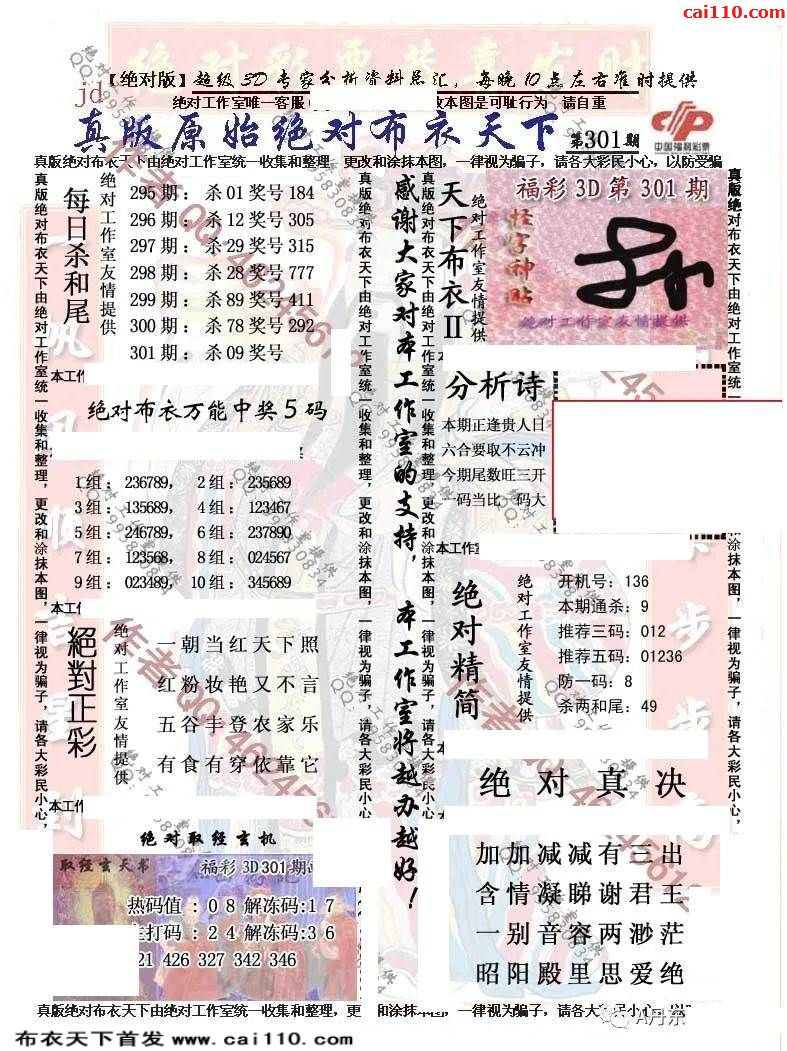 cai110.com
【绝对版】超级3D专家分析资料总汇，每晚10点左右准时提供
jd
绝对工作室唯一客服
改本图是可耻行为 请自重
真版原始绝对布衣天下
第301期
中国福利彩票
真版绝对布衣天下由绝对工作室统一收集和整理，更改和涂抹本图，一律视为骗子，请各大彩民小心，以防受骗
每日杀和尾
绝对工作室友情提供
295期：杀01奖号184
296期：杀12奖号305
297期：杀29奖号315
298期：杀28奖号777
299期：杀89奖号411
300期：杀78奖号292
301期：杀09奖号
本工作
绝对布衣万能中奖5码
1组：236789，  2组：235689
3组：135689，  4组：123467
5组：246789，  6组：237890
7组：123568，  8组：024567
9组：023489，  10组：345689
本工作
絕對正彩
绝对工作室友情提供
一朝当红天下照
红粉妆艳又不言
五谷丰登农家乐
有食有穿依靠它
本工作
绝对取经玄机
取经玄天书
福彩3D301期
热码值：08解冻码:17
主打码：24解冻码:36
21 426 327 342 346
真版绝对布衣天下由绝对工作室统一收集和整理，更改和涂抹本图，一律视为骗子，请各大彩民小心，
感谢大家对本工作室的支持，本工作室将越办越好！
天下布衣II
绝对工作室友情提供
福彩3D第301期
怪字神贴
绝对工作室友情提供
分析诗
本期正逢贵人日
六合要取不云冲
今期尾数旺三开
一码当比 码大
本工作室
绝对精简
绝对工作室友情提供
开机号：136
本期通杀：9
推荐三码：012
推荐五码：01236
防一码：8
杀两和尾：49
绝对真决
加加减减有三出
含情凝睇谢君王
一别音容两渺茫
昭阳殿里思爱绝
作者QQ:46245612
真版绝对布衣天下由绝对工作室统一收集和整理，更
和涂抹本图，一律视为骗子，请各大彩民小心，以防
A丹东
布衣天下首发 www.cai110.com